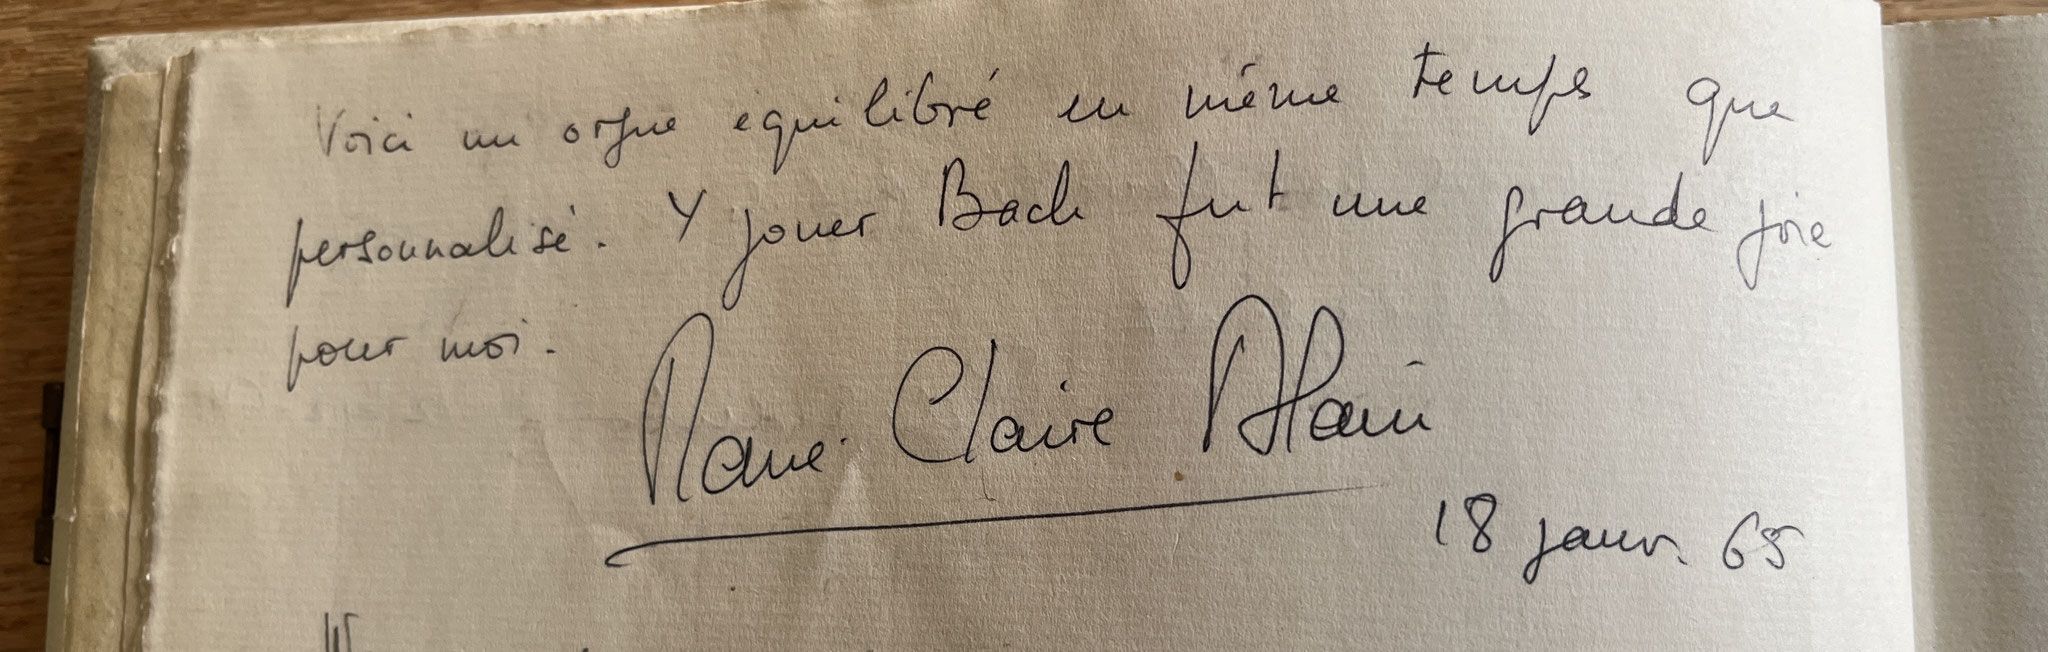 Voici un orgue équilibré en même temps que
personnalisé. Y jouer Bach fut une grande joie
pour moi.
Marie-Claire Alain
18 janv. 65